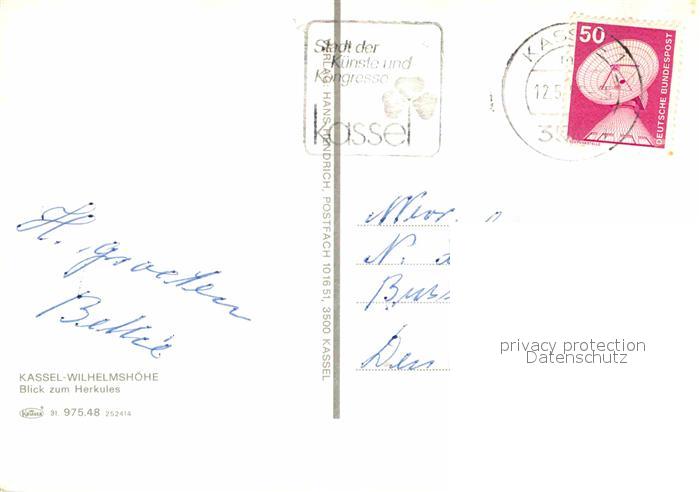 Stadt der
Künste und
Kongresse
kassel
KASSEL
12.5.
35
50
DEUTSCHE BUNDESPOST
VERLAG: HANS HENDRICH, POSTFACH 101651, 3500 KASSEL
H. groeten
Bettie
Mevr.
N.
Den
privacy protection
Datenschutz
KASSEL-WILHELMSHÖHE
Blick zum Herkules
Krüger 31. 975.48 252414